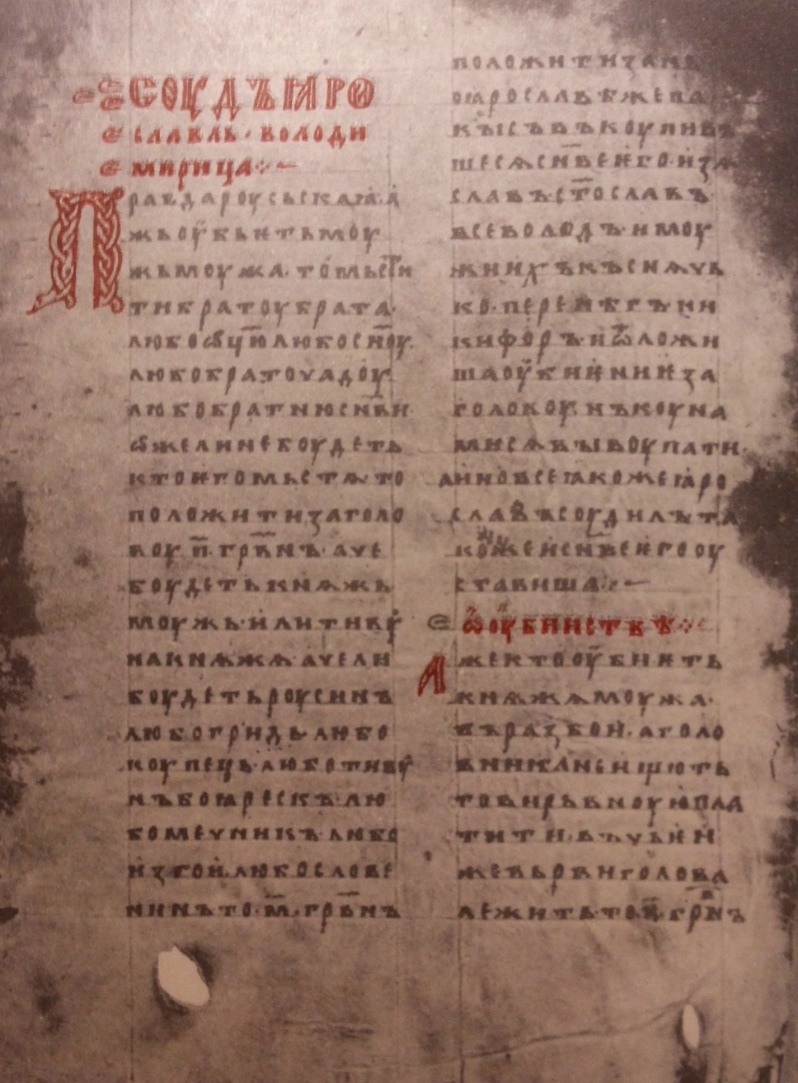 СОУДЪ ꙖРО
СЛАВЛЬ · ВОЛОДИ
МИРИЦА
Правдароусьскаꙗ · а
жьоубьѥтьмоу
жьмоужа · томьстї
тибратоубрата ·
любоѡц҃ю любосн҃оу ·
любобратоучадоу ·
любобратнюсн҃ви
ѡжелинебоудеть
ктоѥгомьстѧто
положитизаголо
воу · п҃ · грв҃нъ · аче
боудетькнѧжь
моужь · илитивоу
накнѧжѧ · ачели
боудетьроусинъ
любогридь · любо
коупець · люботивоу
нъбоꙗрескъ · лю
бомечникъ · любо
изгои · любослове
нинъто · м҃ · грв҃нъ
положитизань ·
оꙗрославѣжепа
кысъвъкоупивъ
шесѧсн҃веѥго · изѧ
славъст҃ославъ
всеволодъ · имоу
жиихъкъснѧчь
ко · перенѣгъни
кифоръ · иѡложи
шаоубиѥниѥза
головоу · нъкоуна
мисѧвыкоупати
аиновсеꙗкожеꙗро
славъсоудилъта
кожеисн҃веѥгооу
ставиша
ѡоубииствѣ
Ажектооубиѥть
кнѧжѧмоужа ·
въразбои · аголо
вниканеищють
товирьвноуюпла
тити · въчьѥи
жевьрвиголова
лежитьто · п҃ · грв҃нъ